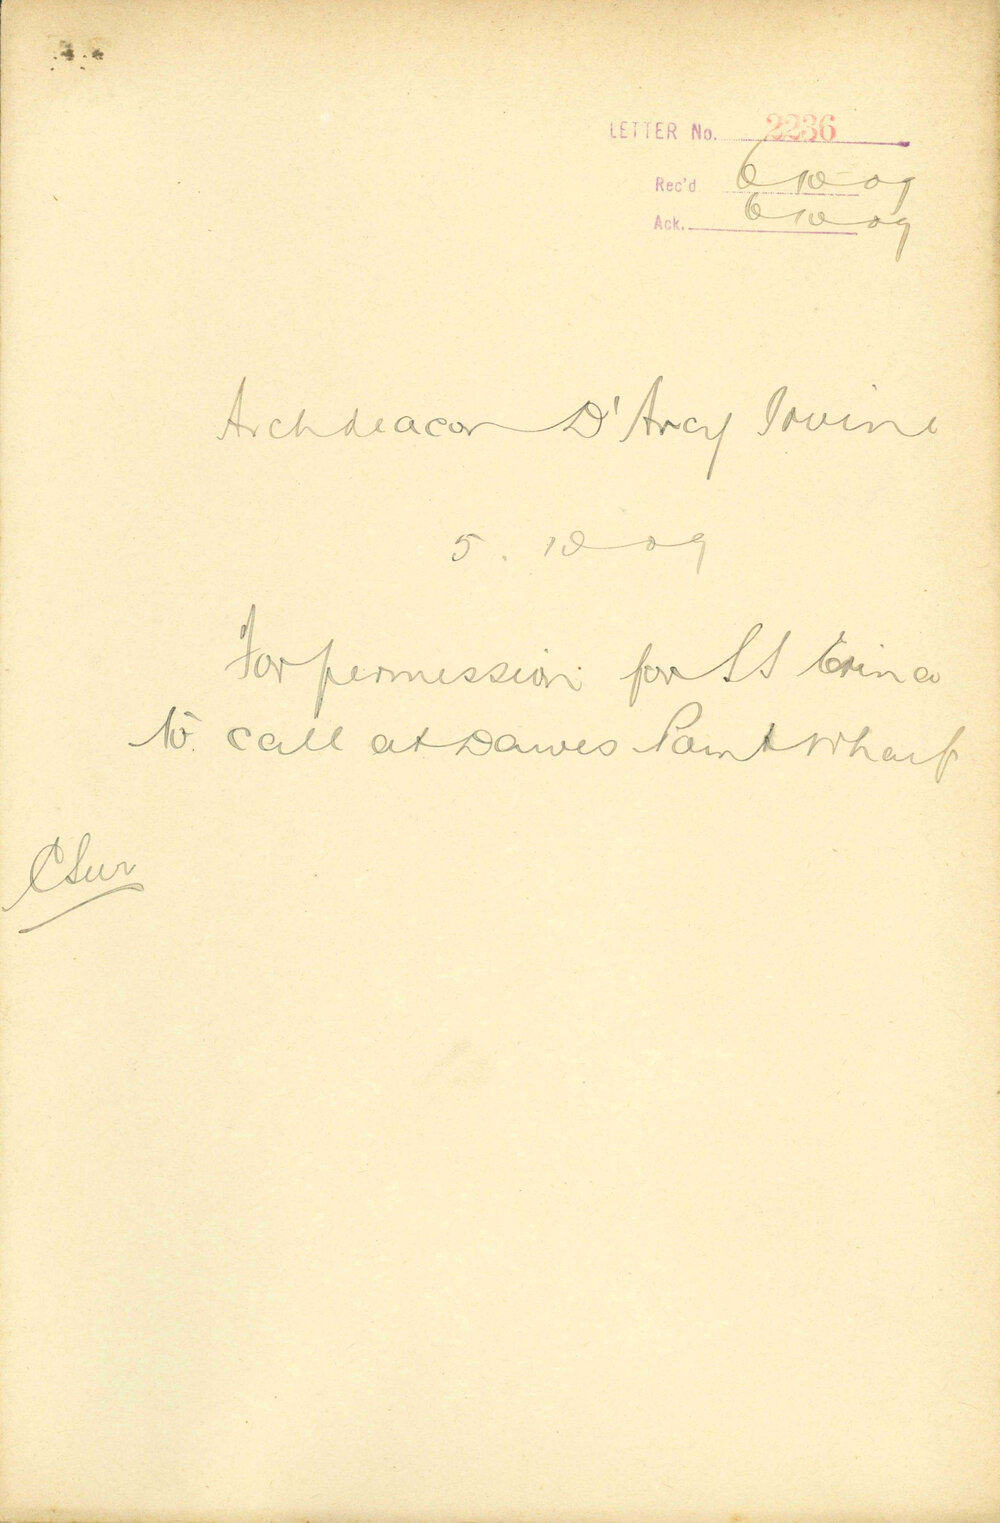 LETTER No. 2236
Rec'd 6 10 09
Ack. 6 10 09
Archdeacon D'Arcy Irvine
5. 10 09
For permission for SS Erina
to call at Dawes Point Wharf
C Sur